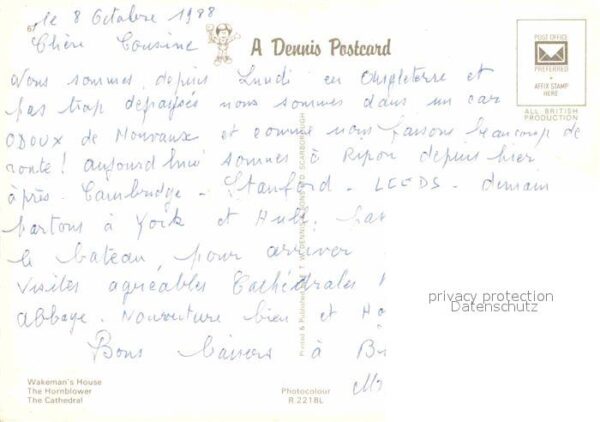 le 8 Octobre 1988
Chère Cousine
A Dennis Postcard
POST OFFICE
PREFERRED
AFFIX STAMP
HERE
ALL BRITISH
PRODUCTION
Nous sommes depuis Lundi en Angleterre et
pas trop depaysés nous sommes dans un car
ODOUX de Mouvaux et comme nous faisons beaucoup de
route! aujourd hui sommes à Ripon depuis hier
après Cambridge - Stanford - LEEDS - demain
partons à York et Hull,
le bateau pour arriver
visites agréables Cathédrales
abbaye. Nourriture bien et
Bons baisers à
privacy protection
Datenschutz
Wakeman's House
The Hornblower
The Cathedral
Photocolour
R 2218L